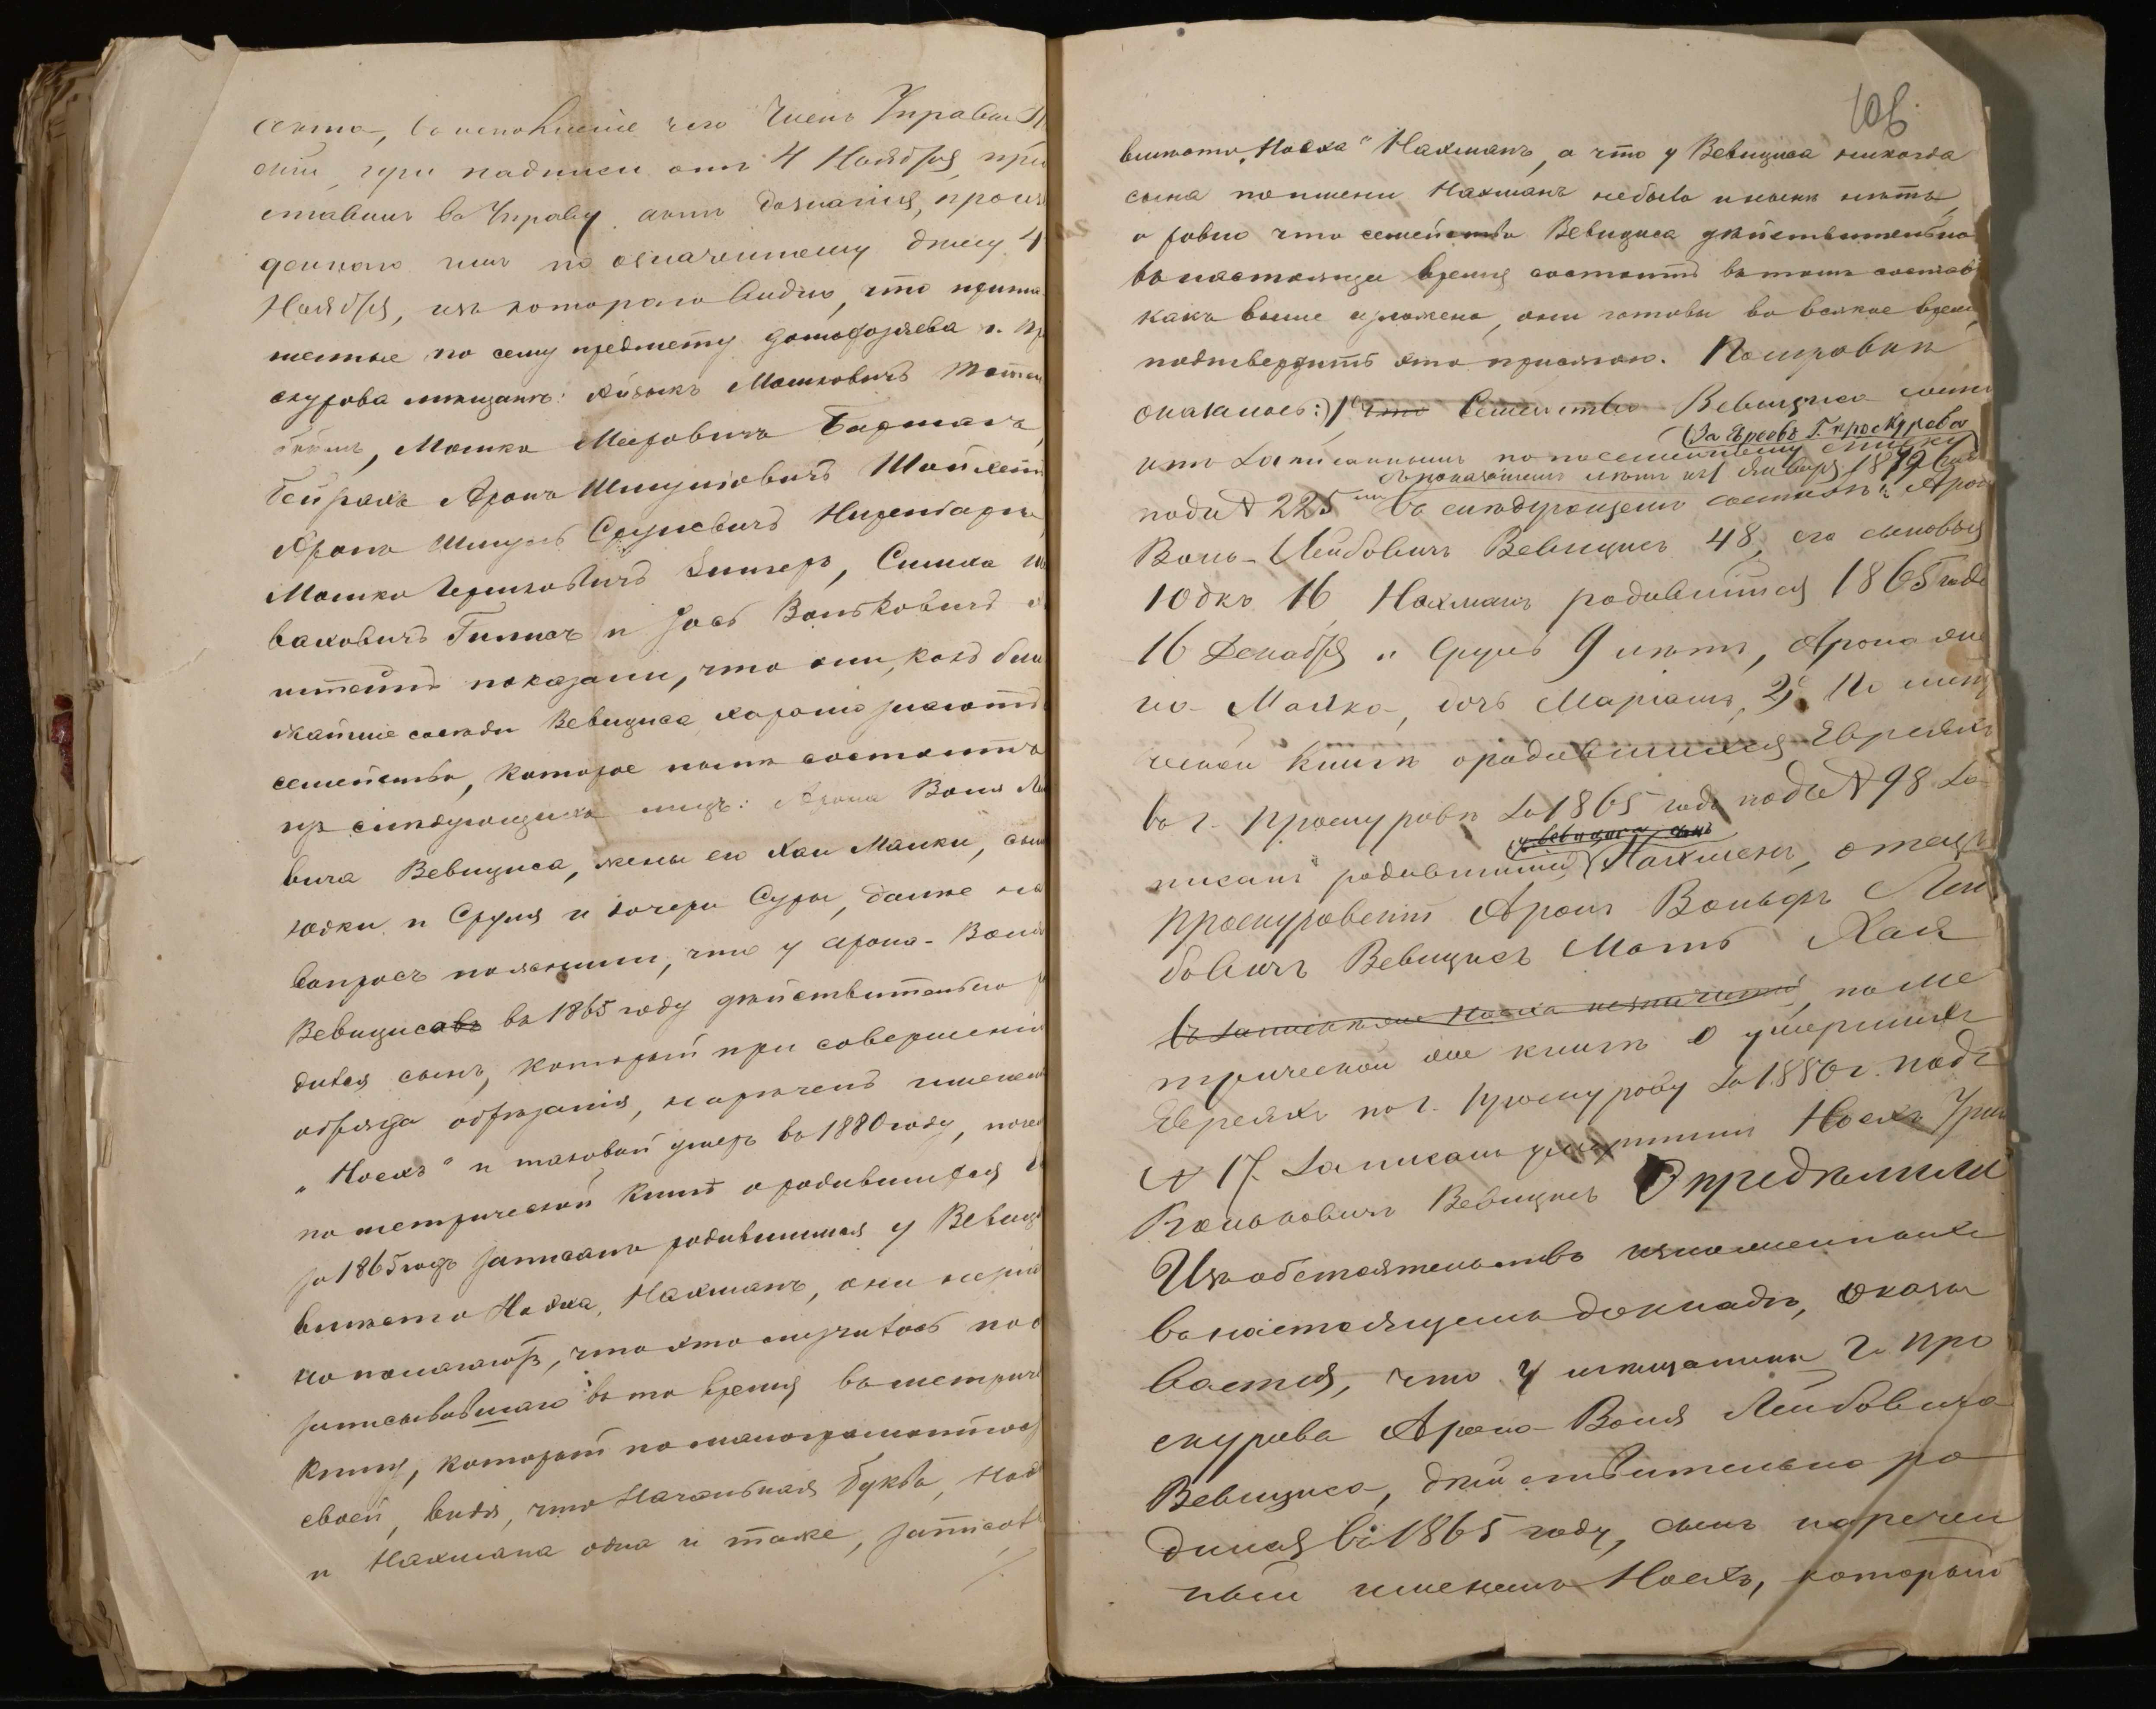 сента, во исполненіе чего Членъ Управы
скій, при надписи отъ 4 Ноября, пре
ставилъ въ Управу актъ дознанія, произве
деннаго имъ по означенному дѣлу 4
Ноября, изъ котораго видно, что пригла
шенные по сему предмету домохозяева г. Пр
скурова мѣщане: Айзыкъ Мошковичъ
Мошко Меировичъ Бергманъ,
Аронъ Шмулювичъ
Аронъ Шмуль Срулевичъ Ниренбергъ,
Мошко Гершковичъ Зингеръ, Симха
ваховичъ и Іось Вольковичъ
показали, что они, какъ бли
жайшіе сосѣди Вевициса хорошо знаютъ
семейство, которое нынѣ состоитъ
изъ слѣдующихъ лицъ: Арона Воля Лей
вича Вевициса, жены его Хаи Малки, сын
Юдки и Сруля и дочери Суры, далѣе на
вопросъ пояснили, что у Арона-Воля
Вевициса въ 1865 году дѣйствительно р
дился сынъ, который при совершеніи
обряда обрѣзанія, нареченъ именемъ
„Носхъ" и таковой умеръ въ 1880 году, поче
по метрической книгѣ о родившихся
за 1865 годъ записанъ родившимся у Вевици
вмѣсто Носха, Нахманъ, они
но полагаютъ, что это случилось по
записывавшаго въ то время въ метриче
книгу, который по малограмотност
своей, видя, что начальная буква, Нос
и Нахмана одна и таже, записа
106
вмѣсто „Носха" Нахманъ, а что у Вевициса никогда
сына по имени Нахманъ не было и нынѣ нѣтъ,
а равно что семейство Вевициса дѣйствительно
въ настоящее время состоитъ въ томъ составѣ
какъ выше изложено, они готовы во всякое время
подтвердить это присягою. По справкѣ
оказалось: 1, что Семейство Вевициса
(За Евреевъ г. Проскурова
записаннымъ по посемейному списку
съ показаніемъ лѣтъ къ 1 Января 1879 года
подъ № 225 въ слѣдующемъ составѣ: Аронъ
Воль-Лейбовичъ Вевицисъ 48, его сыновья
Юдка 16, Нахманъ родившійся 1865 года
16 Декабря и Сруль 9 лѣтъ, Арона же
на Малка, дочь Маріамъ, 2, По метри
ческой книгѣ о родившихся Евреяхъ
въ г. Проскуровѣ за 1865 годъ подъ № 98 за
у Вевициса сынъ
писанъ родившимся Нахманъ, отецъ
Проскуровскій Аронъ Вольфъ Лей
бовичъ Вевицисъ Мать Хая
въ Носха, по ме
трической же книгѣ о умершихъ
Евреяхъ по г. Проскурову за 1880 г. подъ
№ 17. Записанъ умершимъ Носхъ
Вольковичъ Вевицисъ Опредѣлили
Изъ обстоятельствъ изложенныхъ
въ настоящемъ докладѣ, оказы
вается, что у мѣщанина г. Про
скурова Арона-Воля Лейбовича
Вевициса, дѣйствительно ро
дился въ 1865 году, сынъ наречен
ный именемъ Носхъ, который